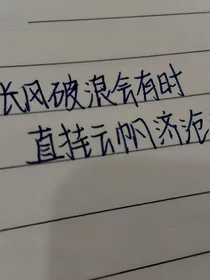 长风破浪会有时
直持云帆济沧